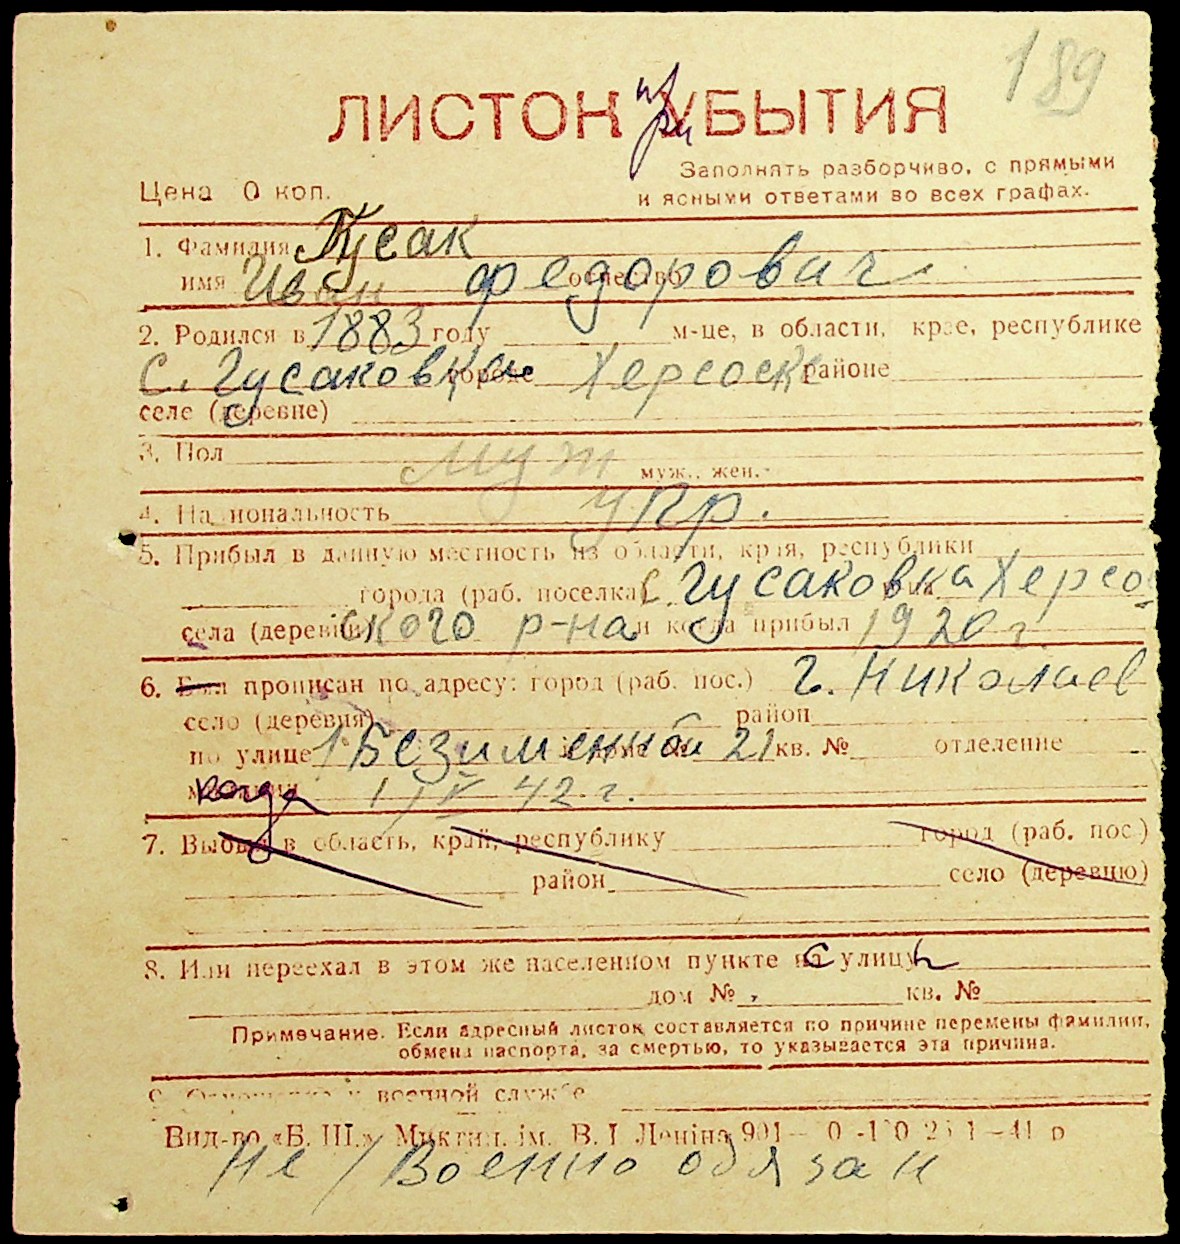 189
ЛИСТОК УБЫТИЯ
при
Заполнять разборчиво, с прямыми
Цена 0 коп. и ясными ответами во всех графах.
1. Фамилия Гусак
имя Иван отчество Федорович
2. Родился в 1883 году м-це, в области, крае, республике
с. Гусаковка городе Херсоск районе
селе (деревне)
3. Пол муж муж., жен.
4. Национальность укр.
5. Прибыл в данную местность из области, края, республики
города (раб. поселка) с. Гусаковка Херсо-
села (деревни) ского р-на и когда прибыл 1920 г.
6. Был прописан по адресу: город (раб. пос.) г. Николаев
село (деревня) район
по улице 1 Безименной дом № 21 кв. № отделение
милиции когда 1/IV 42 г.
7. Выбыл в область, край, республику город (раб. пос.)
район село (деревню)
8. Или переехал в этом же населенном пункте на с улицу
дом № кв. №
Примечание. Если адресный листок составляется по причине перемены фамилии,
обмена паспорта, за смертью, то указывается эта причина.
9. Отношение к военной службе
Вид-во «Б. Ш.» Миктип. ім. В. І. Леніна 901—
Не/Военно обязан